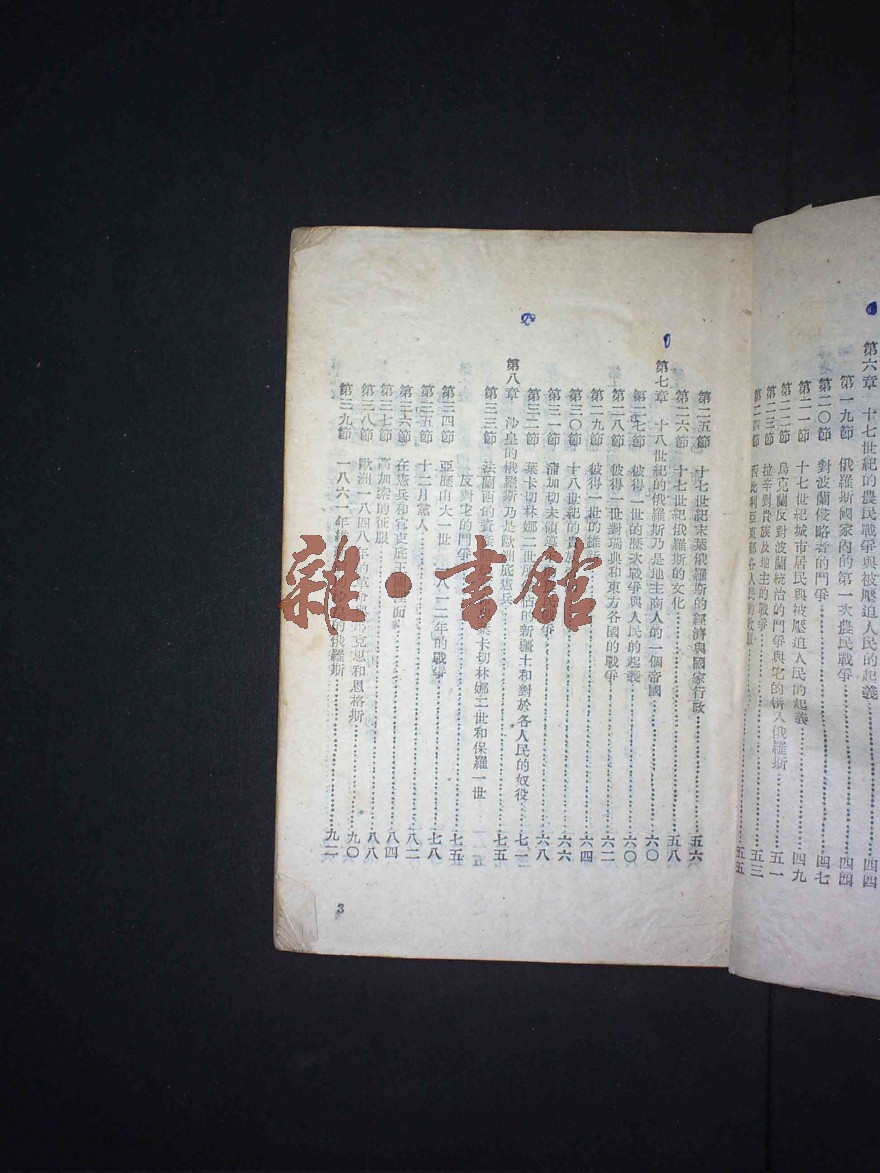 第六章　十七世紀的農民戰爭與被壓迫人民的起義………四四
第一九節　俄羅斯國家內的第一次農民戰爭………四四
第二〇節　對波蘭侵略者的鬥爭………四七
第二一節　十七世紀城市居民與被壓迫人民的起義………四九
第二二節　烏克蘭反對波蘭統治的鬥爭與它的併入俄羅斯………五一
第二三節　拉辛對貴族及地主的戰爭………五三
第二四節　西比利亞東部各人民的………五五
第二五節　十七世紀末葉俄羅斯的經濟與國家行政………五六
第二六節　十七世紀俄羅斯的文化………五八
第七章　十八世紀的俄羅斯乃是地主商人的一個帝國………六〇
第二七節　彼得一世的歷次戰爭與人民的起義………六〇
第二八節　彼得一世對瑞典和東方各國的戰爭………六二
第二九節　彼得一世的維新………六四
第三〇節　十八世紀的貴………六六
第三一節　蒲加切夫領導爭………六八
第三二節　葉卡切林娜二世的新疆土和對於各人民的奴役………七一
第八章　沙皇的俄羅斯乃是歐洲底憲兵………七五
第三三節　法蘭西的資葉卡切林娜二世和保羅一世
反對它的鬥爭………七五
第三四節　亞歷山大一世　一八一二年的戰爭………七八
第三五節　十二月黨人………八二
第三六節　在憲兵和官吏底王國裡面………八四
第三七節　高加索的征服………八八
第三八節　歐洲一八四八年的革命與馬克思和恩格斯………九〇
第三九節　一八六一年的俄羅斯………九二
3
雜·書館